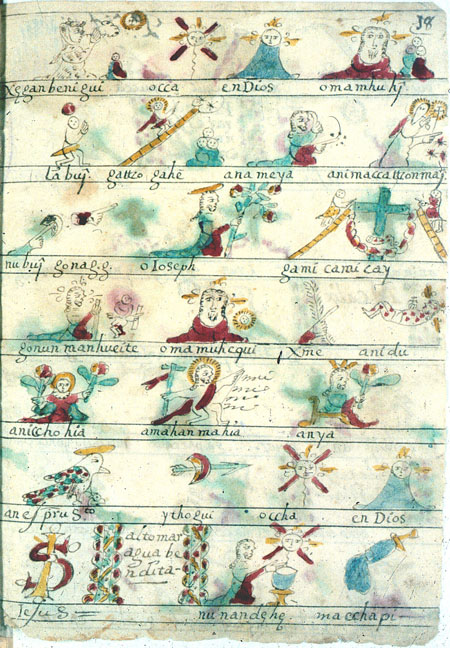 38
xeganbenigui occa en Dios omamhuhj
labuj gattzo gahe anameya animaccattzonmaj
nubuj gonagigj o Ioseph gami caraicay
gonunmanhueite omamuhcqui Xme anidu
aniccho hia amahan mahia anya
anespruS ythogui occha en Dios
aitomar
agua be
ndita
IesuS nunandehe macchapi